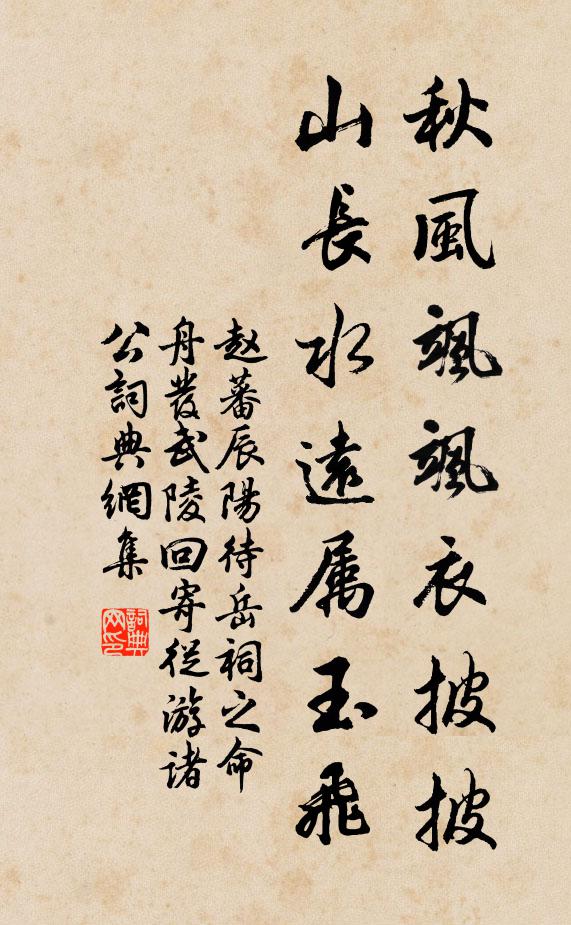 秋風颯颯衣披披
山長水遠属玉飛
赵蕃辰陽待岳祠之命
舟發武陵回寄從游诸
公詞典網集
詞典網印